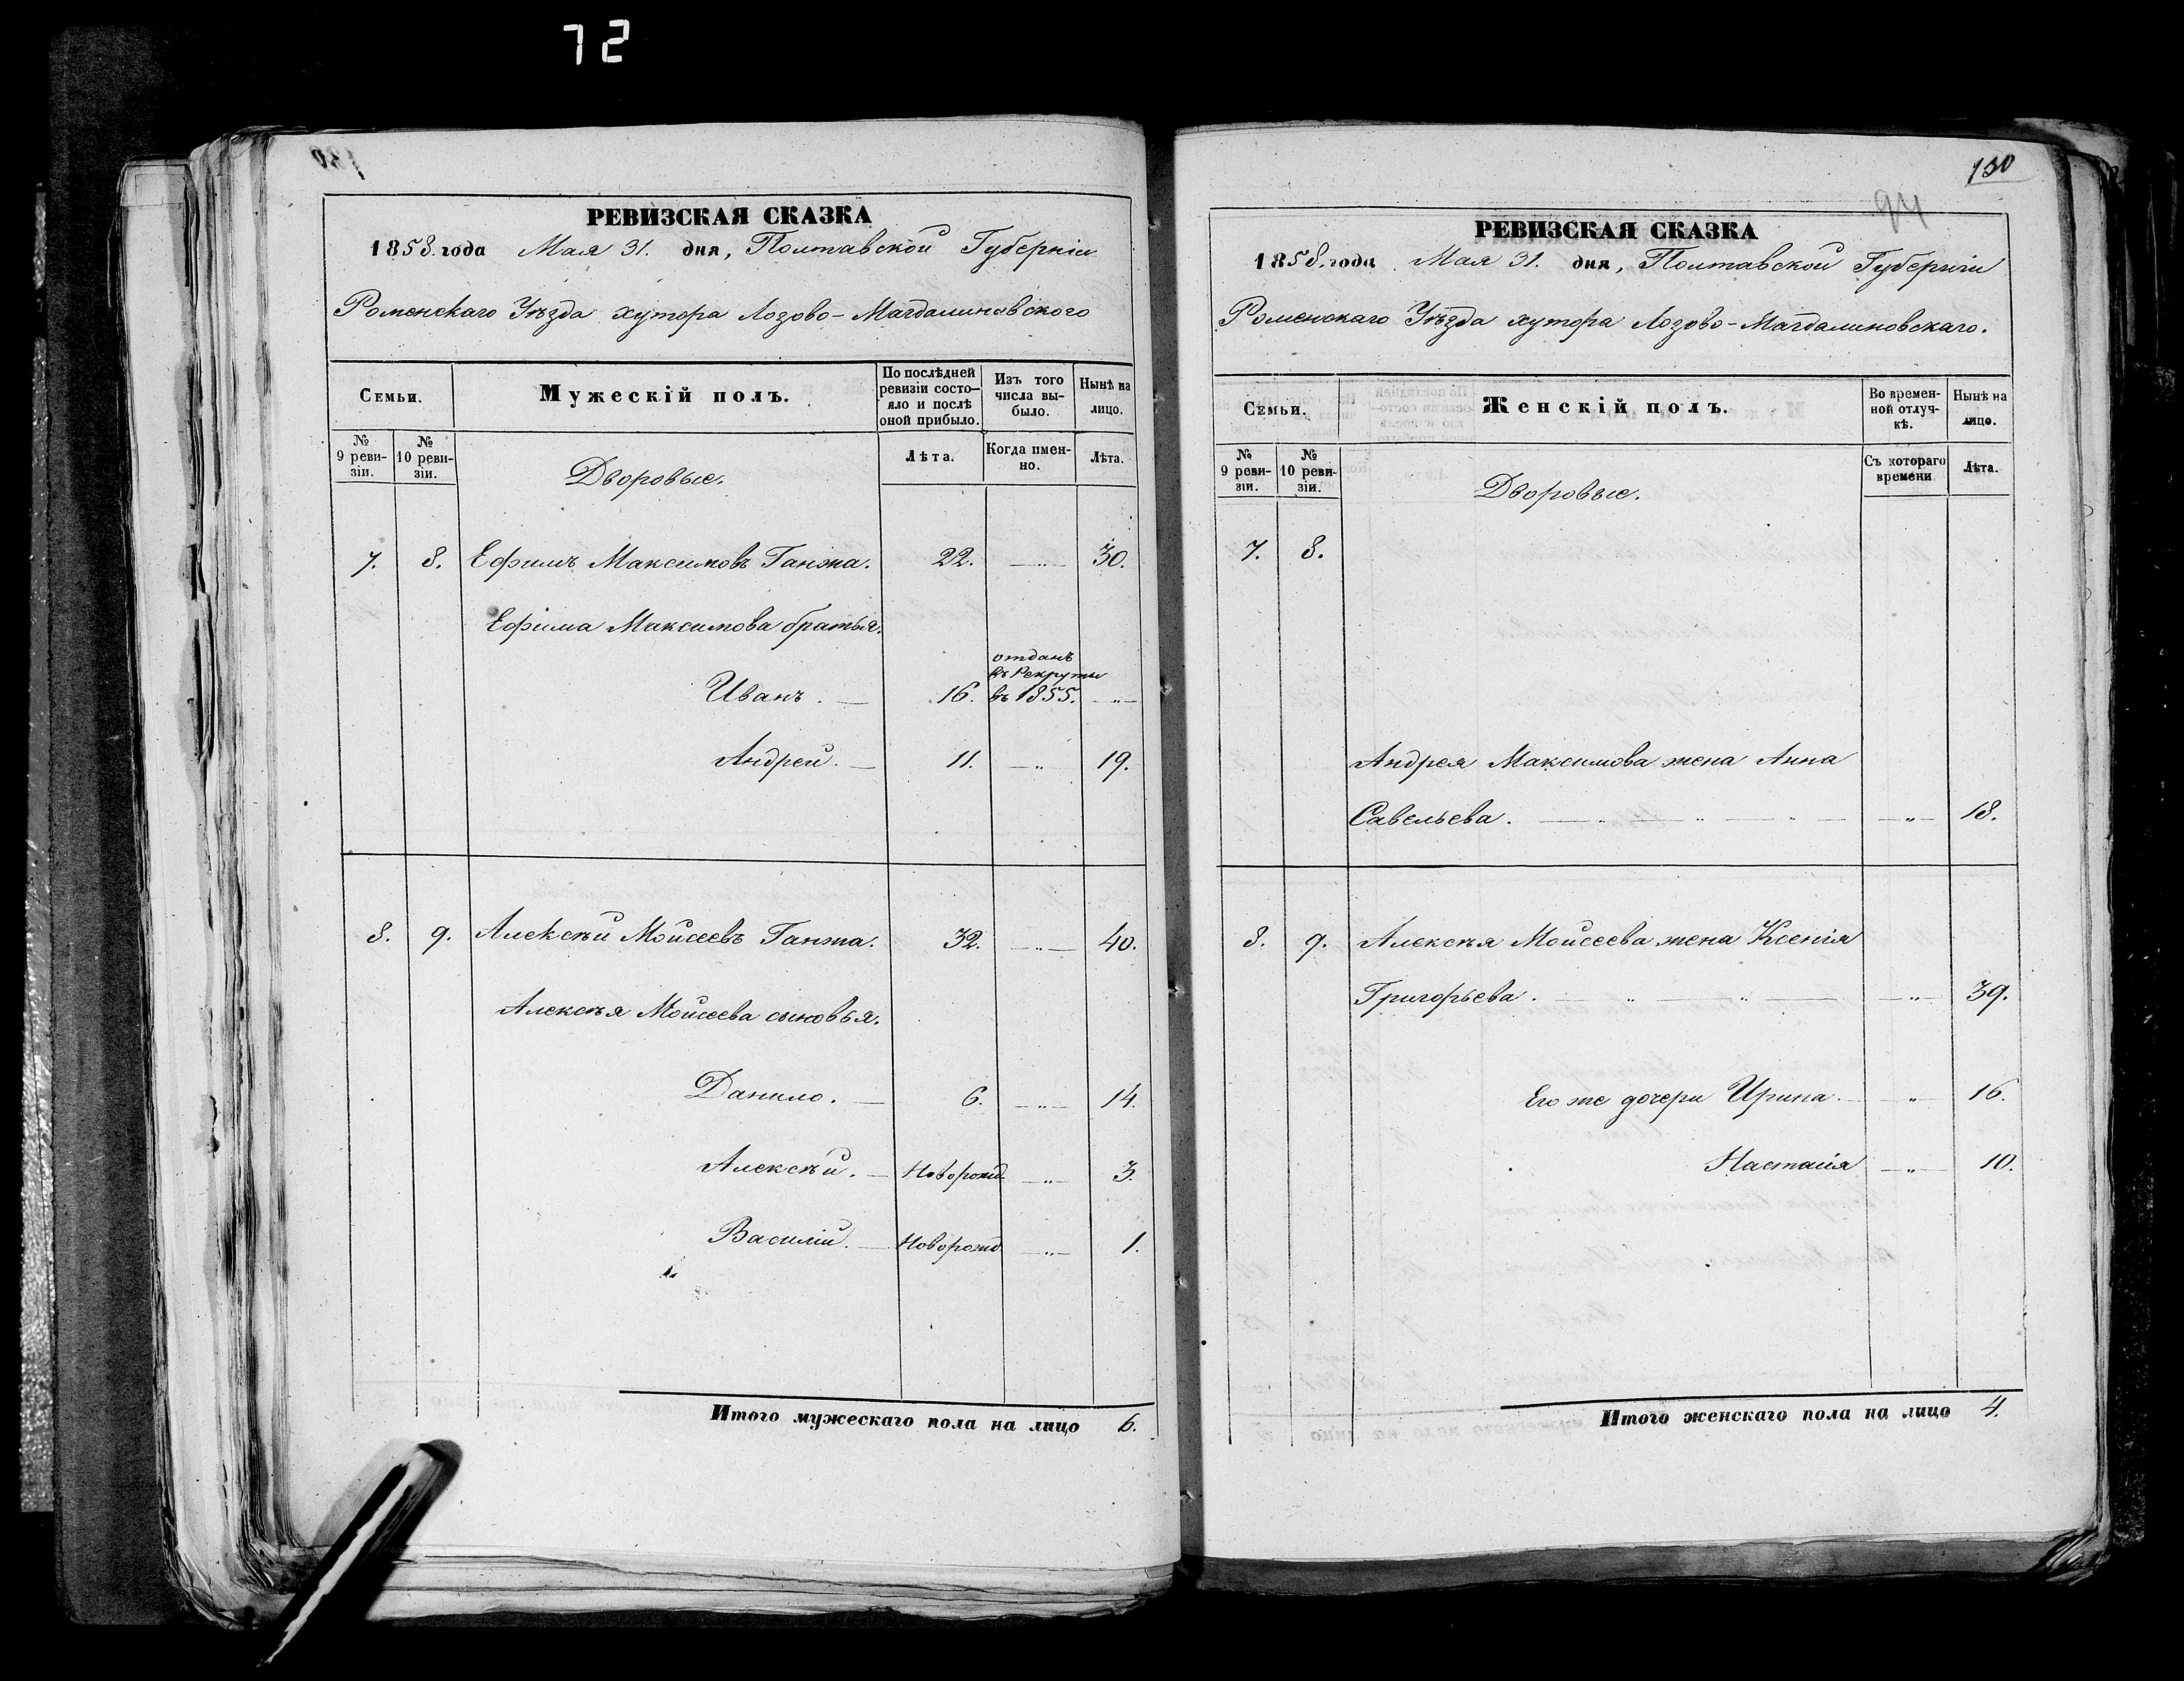 72
130
РЕВИЗСКАЯ СКАЗКА
1858. года Мая 31. дня, Полтавской Губерніи
Роменскаго Уѣзда хутора Лозово-Магдалиновского
Семьи.
Мужескій полъ.
По послѣдней ревизіи состо-
яло и послѣ оной прибыло.
Изъ того числа вы-
было.
Нынѣ на лицо.
№ 9 реви-
зіи.
№ 10 реви-
зіи.
Дворовые.
Лѣта.
Когда имен-
но.
Лѣта.
7. 8. Ефимъ Максимовъ Ганжа. 22. — „ — 30.
Ефима Максимова братья.
отданъ
въ Рекруты
Иванъ. — 16. въ 1855. — „ —
Андрей. — 11. — „ 19.
8. 9. Алексѣй Мойсеевъ Ганжа. 32. — „ — 40.
Алексѣя Мойсеева сыновья.
Данило. — 6. — „ — 14.
Алексѣй. — Новорожд. — „ — 3.
Василій. — Новорожд — „ — 1.
Итого мужескаго пола на лицо 6.
130
94
РЕВИЗСКАЯ СКАЗКА
1858. года Мая 31. дня, Полтавской Губерніи
Роменскаго Уѣзда хутора Лозово-Магдалиновскаго.
Семьи.
Женскій полъ.
Во времен-
ной отлуч-
кѣ.
Нынѣ на лицо.
№ 9 реви-
зіи.
№ 10 реви-
зіи.
Дворовые.
Съ котораго времени
Лѣта.
7. 8.
Андрея Максимова жена Анна
Савельева. — „ — „ — „ — — „ — 18.
8. 9. Алексѣя Мойсеева жена Ксенія
Григорьева. — „ — „ — — „ — 39.
Его же дочери Ирина. — „ — 16.
Настасія — „ — 10.
Итого женскаго пола на лицо 4.